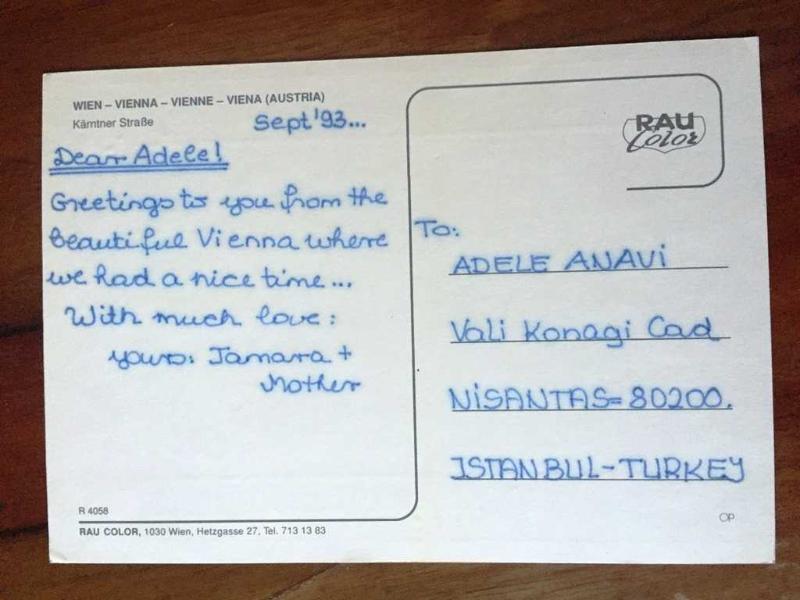 WIEN – VIENNA – VIENNE – VIENA (AUSTRIA)
Kärntner Straße
Sept '93...
Dear Adele!
Greetings to you from the
beautiful Vienna where
we had a nice time...
With much love:
yours: Tamara +
Mother
R 4058
RAU COLOR, 1030 Wien, Hetzgasse 27, Tel. 713 13 83
RAU
Color
To:
ADELE ANAVi
Vali Konagi Cad
NiSANTAS= 80200.
ISTANBUL-TURKEY
OP